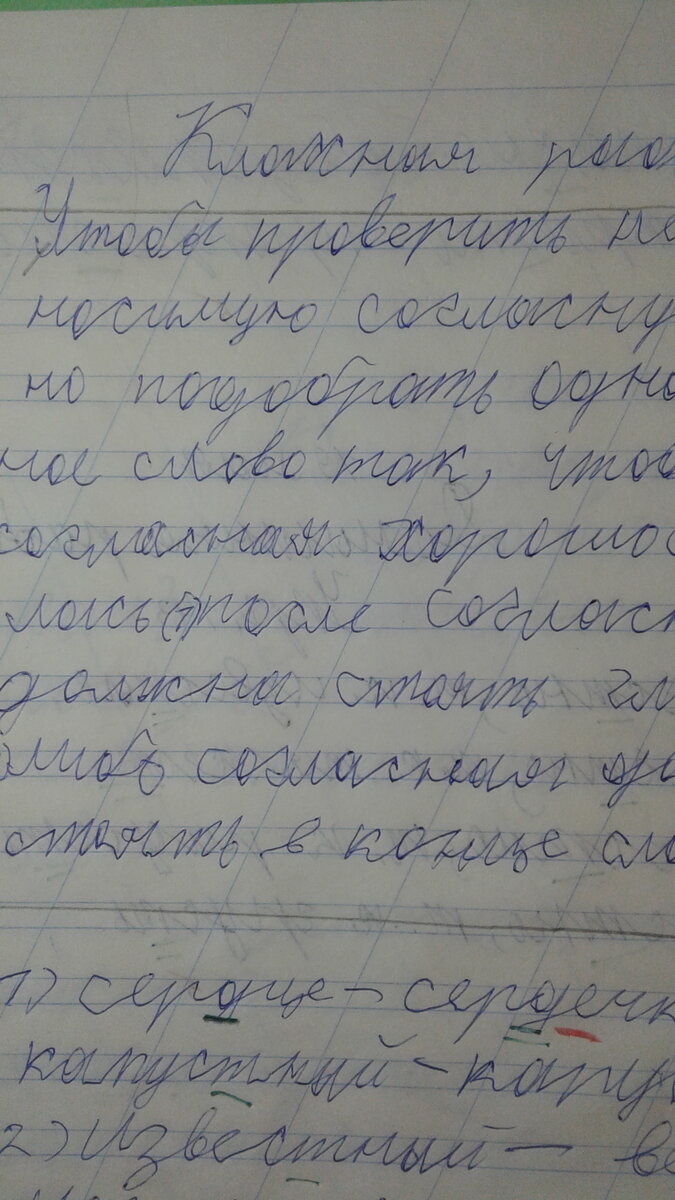 Клажная рабо
Чтобы проверить не
носимую согласну
но подобрать одно
ное слово так, чтоб
согласная хорошо с
лась(?)после согласн
должна стоять гл
либо согласная до
стоять в конце сло
1) сердце – сердечк
капустный – капу
2) Известный – ве